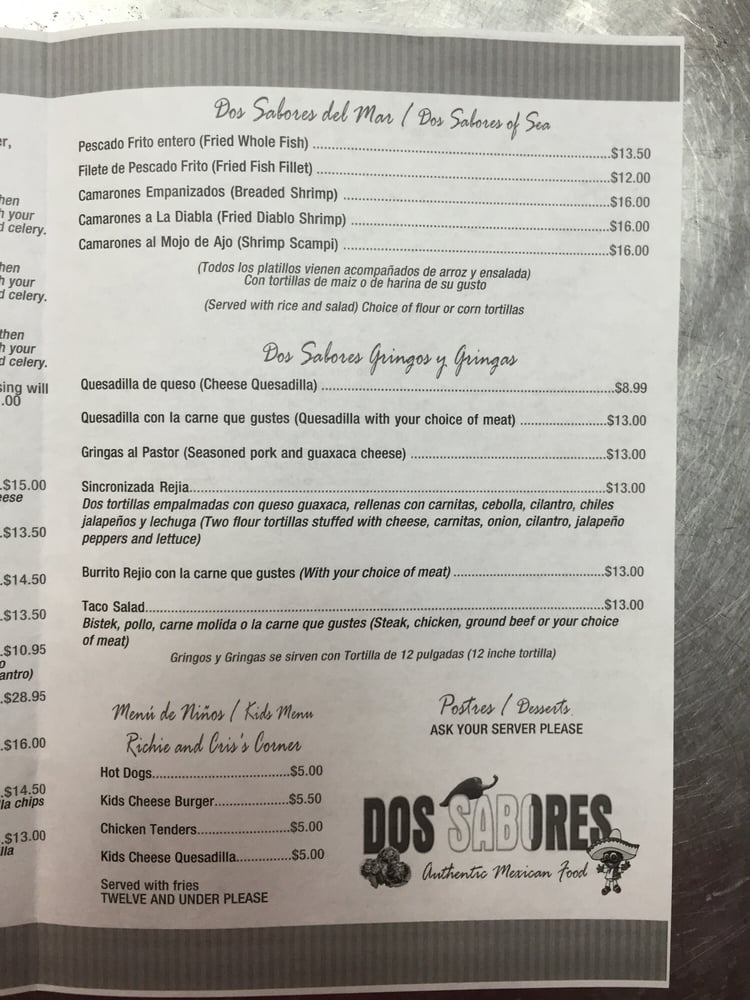 er,
hen
h your
d celery.
hen
h your
d celery.
then
h your
d celery.
sing will
.00
.$15.00
eese
.$13.50
.$14.50
.$13.50
.$10.95
o
antro)
.$28.95
.$16.00
.$14.50
la chips
.$13.00
lla
Dos Sabores del Mar / Dos Sabores of Sea
Pescado Frito entero (Fried Whole Fish) ........................................$13.50
Filete de Pescado Frito (Fried Fish Fillet) ........................................$12.00
Camarones Empanizados (Breaded Shrimp) ........................................$16.00
Camarones a La Diabla (Fried Diablo Shrimp) ........................................$16.00
Camarones al Mojo de Ajo (Shrimp Scampi) ........................................$16.00
(Todos los platillos vienen acompañados de arroz y ensalada)
Con tortillas de maiz o de harina de su gusto
(Served with rice and salad) Choice of flour or corn tortillas
Dos Sabores Gringos y Gringas
Quesadilla de queso (Cheese Quesadilla) ........................................$8.99
Quesadilla con la carne que gustes (Quesadilla with your choice of meat) ....................$13.00
Gringas al Pastor (Seasoned pork and guaxaca cheese) ........................................$13.00
Sincronizada Rejia........................................$13.00
Dos tortillas empalmadas con queso guaxaca, rellenas con carnitas, cebolla, cilantro, chiles
jalapeños y lechuga (Two flour tortillas stuffed with cheese, carnitas, onion, cilantro, jalapeño
peppers and lettuce)
Burrito Rejio con la carne que gustes (With your choice of meat) ..............................$13.00
Taco Salad........................................$13.00
Bistek, pollo, carne molida o la carne que gustes (Steak, chicken, ground beef or your choice
of meat)
Gringos y Gringas se sirven con Tortilla de 12 pulgadas (12 inche tortilla)
Menú de Niños / Kids Menu
Richie and Cris's Corner
Hot Dogs..............................$5.00
Kids Cheese Burger..................$5.50
Chicken Tenders.....................$5.00
Kids Cheese Quesadilla.............$5.00
Served with fries
TWELVE AND UNDER PLEASE
Postres / Desserts
ASK YOUR SERVER PLEASE
DOS SABORES
Authentic Mexican Food